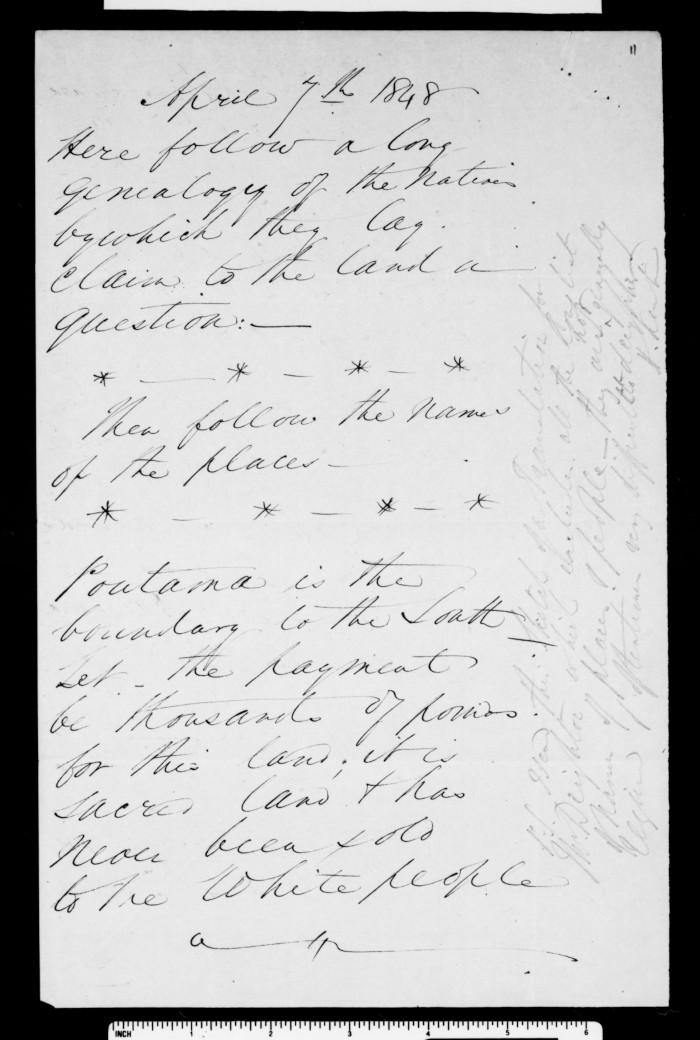 11
April 7th 1848
Here follow a long
genealogy of the Natives
by which they lay
claim to the land in
question:—
* — * — * — *
Then follow the names
of the places —
* — * — * — *
Poutama is the
boundary to the South —
Let — the payment
be thousands of pounds
for this land; it is
sacred land & has
never been sold
to the White people
Translation for
Mr Deighton which includes all the long list
names of places & people —